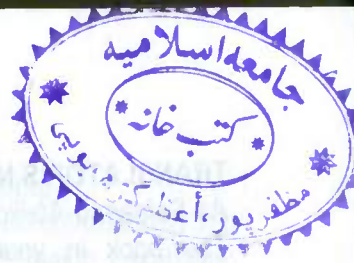 جامعہ اسلامیہ
کتب خانہ
مظفرپور، أعظم گڑھ، یوپی